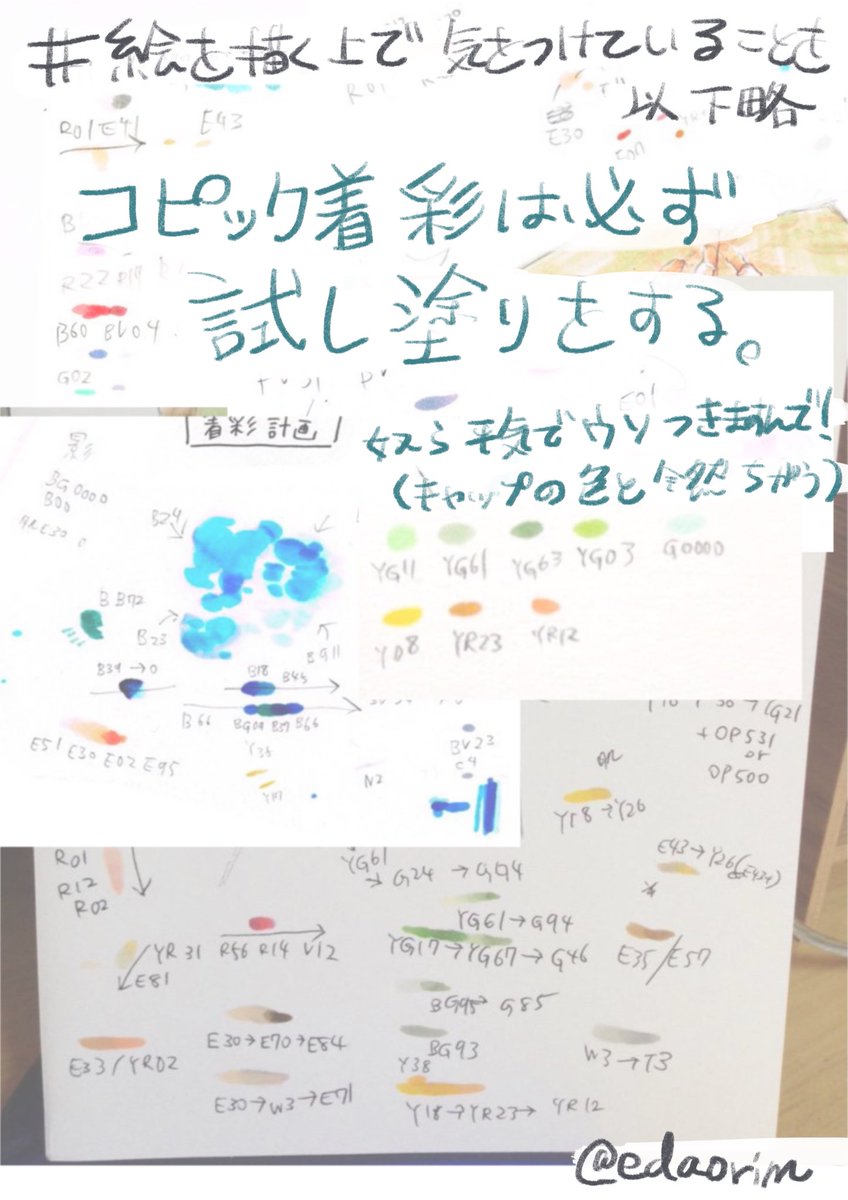 #絵を描く上で気をつけていることを
以下略
R01 E41
E43
E30
コピック着彩は必ず
B
試し塗りをする。
R22
B60 BV04
G02
E01
着彩計画
奴ら平気でウソつきますんで!
(キャップの色と全然ちがう)
影
BG0000
B00
B24
YG11 YG61 YG63 YG03 G0000
B B72
B23
B911
Y08 YR23 YR12
B39→0
B18 B45
B66
BG09 B39 B66
E51 E30 E02 E95
Y38
N2
BV23
C4
→G21
+OP531
or
OP500
or
Y18→Y26
R01
R12
R02
YG61
→G24→G94
E43→Y26
YG61→G94
YR31
R56 R14 V12
YG17→YG67→G46
E35/E57
E81
BG95→G85
E33/YR02
E30→E70→E84
BG93
W3→T3
Y38
E30→W3→E71
Y18→YR23→YR12
@edaorim